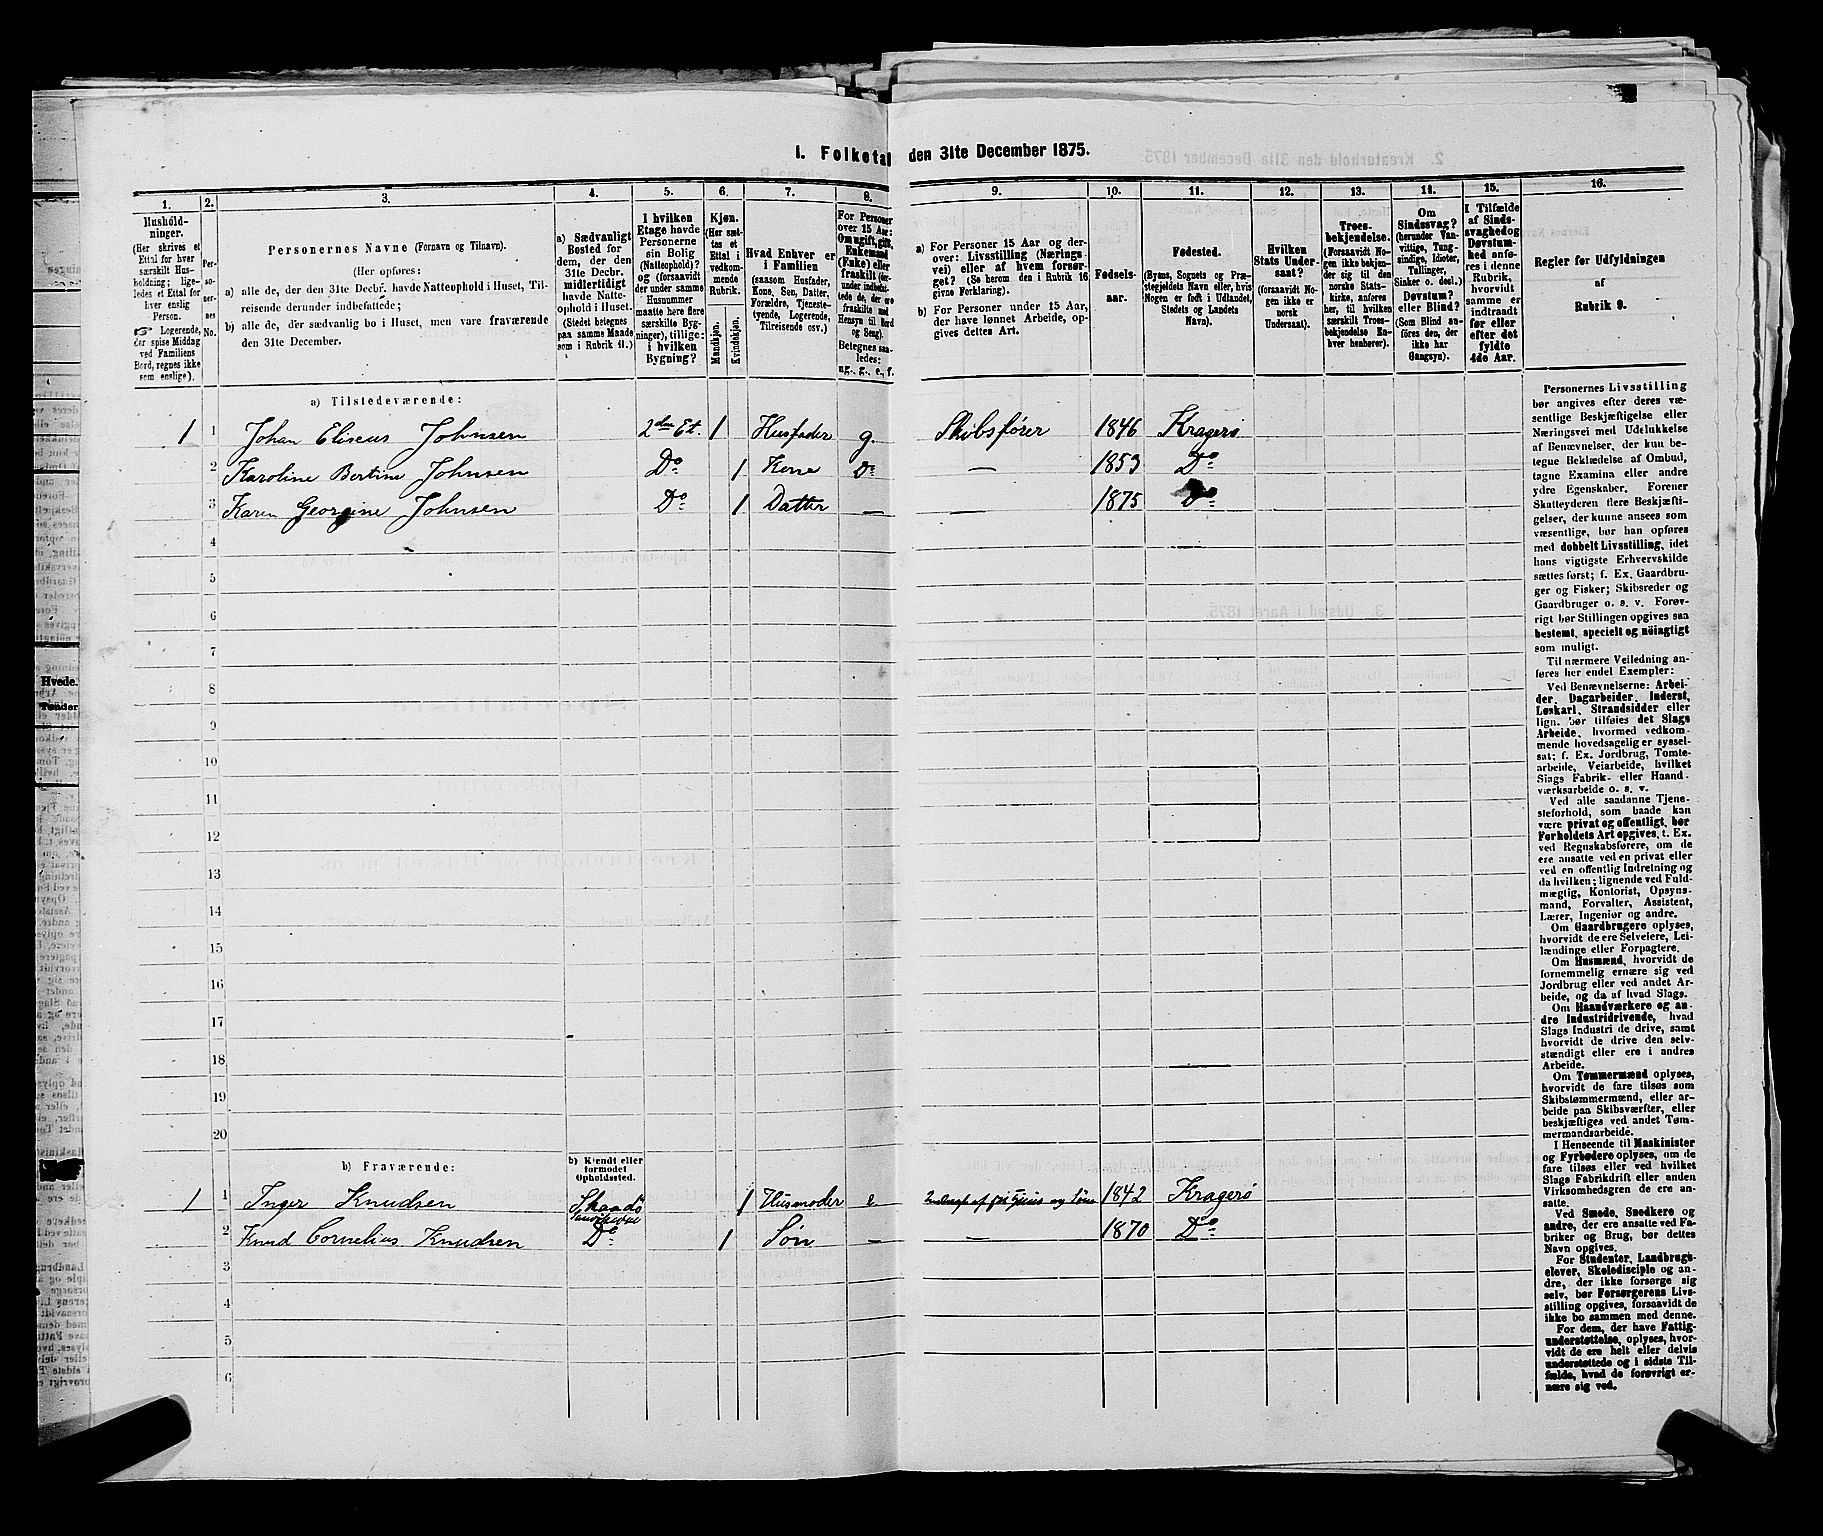 1. Folketal den 31te December 1875.
1. 2. 3. 4. 5. 6. 7. 8. 9. 10. 11. 12. 13. 14. 15. 16.
Husholdninger.
(Her skrives et
Ettal for hver
særskilt Husholdning; ligeledes et Ettal for
hver enslig
Person.
Logerende,
der spise Middag
ved Familiens
Bord, regnes ikke
som enslige).
Personernes No.
Personernes Navne (Fornavn og Tilnavn).
(Her opføres:
a) alle de, der den 31te Decbr. havde Natteophold i Huset, Tilreisende derunder indbefattede;
b) alle de, der sædvanlig bo i Huset, men vare fraværende
den 31te December.
a) Sædvanligt
Bosted for
dem, der den
31te Decbr.
midlertidigt
havde Natteophold i Huset.
(Stedet betegnes
paa samme Maade
som i Rubrik 11.)
I hvilken
Etage havde
Personerne
sin Bolig
(Natteophold)?
og (forsaavidt
der under samme
Husnummer
maatte høre flere
særskilte Bygninger), tillige:
i hvilken
Bygning?
Kjøn.
(Her sættes et
Ettal i
vedkommende
Rubrik.
Mandskjøn.
Kvindekjøn.
Hvad Enhver er
i Familien
(saasom Husfader,
Kone, Søn, Datter,
Forældre, Tjenestetyende, Logerende,
Tilreisende osv.)
For Personer
over 15 Aar:
Om ugift, gift,
Enkemand
(Enke) eller
fraskilt (derunder indbefattede de, der ere
fraskilte med
Hensyn til Bord
og Seng).
Betegnes saaledes:
ug., g., e., f.
a) For Personer 15 Aar og derover: Livsstilling (Næringsvei) eller af hvem forsørget? (Se herom den i Rubrik 16
givne Forklaring).
b) For Personer under 15 Aar,
der have lønnet Arbeide, opgives dettes Art.
Fødselsaar.
Fødested.
(Byens, Sognets og Præstegjeldets Navn eller, hvis
Nogen er født i Udlandet,
Stedets og Landets
Navn).
Hvilken
Stats Undersaat?
(forsaavidt
Nogen ikke er
norsk
Undersaat).
Troesbekjendelse.
(Forsaavidt Nogen ikke bekjender sig til den
norske Statskirke, anføres
her, til hvilken
særskilt Troesbekjendelse Enhver henhører).
Om
Sindssvag?
(herunder Vanvittige, Tungsindige, Idioter,
Tullinger,
Sinker o. desl.)
Døvstum?
eller Blind?
(Som Blind anføres den, der
ikke har
Gangsyn).
I Tilfælde
af Sindssvaghed og
Døvstumhed anføres i denne
Rubrik,
hvorvidt
samme er
indtraadt
før eller
efter det
fyldte
4de Aar.
Regler for Udfyldningen
af
Rubrik 9.
a) Tilstedeværende:
1 1 Johan Eliseus Johnsen 2den Et. 1 Husfader g. Skibsfører 1846 Kragerø
2 Karoline Bertine Johnsen Do 1 Kone Do — 1853 Do
3 Karen Georgine Johnsen Do 1 Datter — — 1875 Do
4
5
6
7
8
9
10
11
12
13
14
15
16
17
18
19
20
b) Fraværende:
b) Kjendt eller
formodet
Opholdssted.
1 1 Inger Knudsen Skaadø 1 Husmoder e 1842 Kragerø
2 Knud Cornelius Knudsen Do 1 Søn — — 1870 Do
3
4
5
6
Personernes Livsstilling
bør angives efter deres væsentlige Beskjæftigelse eller
Næringsvei med Udelukkelse
af Benævnelser, der kun betegne Beklædelse af Ombud,
tagne Examina eller andre
ydre Egenskaber. Forener
Skatteyderen flere Beskjæftigelser, der kunne ansees som
væsentlige, bør han opføres
med dobbelt Livsstilling, idet
hans vigtigste Erhvervskilde
sættes først; f. Ex. Gaardbruger og Fisker; Skibsreder og
Gaardbruger o. s. v. Forøvrigt bør Stillingen opgives saa
bestemt, specielt og nøiagtigt
som muligt.
Til nærmere Veiledning anføres her endel Exempler:
Ved Benævnelserne: Arbeider, Dagarbeider, Inderst,
Løskarl, Strandsidder eller
lign. bør tilføies det Slags
Arbeide, hvormed vedkommende hovedsagelig er sysselsat; f. Ex. Jordbrug, Tomtearbeide, Veiarbeide, hvilket
Slags Fabrik- eller Haandværksarbeide o. s. v.
Ved alle saadanne Tjenesteforhold, som baade kan
være privat og offentligt, bør
Forholdets Art opgives, t. Ex.
ved Regnskabsførere, om de
ere ansatte ved en privat eller
ved en offentlig Indretning og
da hvilken; lignende ved Fuldmægtig, Kontorist, Opsynsmand, Forvalter, Assistent,
Lærer, Ingeniør og andre.
Om Gaardbrugere oplyses,
hvorvidt de ere Selveiere, Leilændinge eller Forpagtere.
Om Husmænd, hvorvidt de
fornemmelig ernære sig ved
Jordbrug eller ved andet Arbeide, og da af hvad Slags.
Om Haandværkere og andre Industridrivende, hvad
Slags Industri de drive, samt
hvorvidt de drive den selvstændigt eller ere i andres
Arbeide.
Om Tømmermænd oplyses,
hvorvidt de fare tilsøs som
Skibstømmermænd, eller arbeide paa Skibsværfter, eller
beskjæftiges ved andet Tømmermandsarbeide.
I Henseende til Maskinister
og Fyrbødere oplyses, om de
fare tilsøs eller ved hvilket
Slags Fabrikdrift eller anden
Virksomhedsgren de ere ansatte.
Ved Smede, Snedkere og
andre, der ere ansatte ved Fabriker og Brug, bør dettes
Navn opgives.
For Studenter, Landbrugselever, Skoledisciple og andre, der ikke forsørge sig
selv, bør Forsørgerens Livsstilling opgives, forsaavidt de
ikke bo sammen med denne.
For dem, der have Fattigunderstøttelse, oplyses, hvorvidt de ere helt eller delvis
understøttede og i sidste Tilfælde, hvad de forøvrigt ernære sig ved.
Hvede.
Tønder